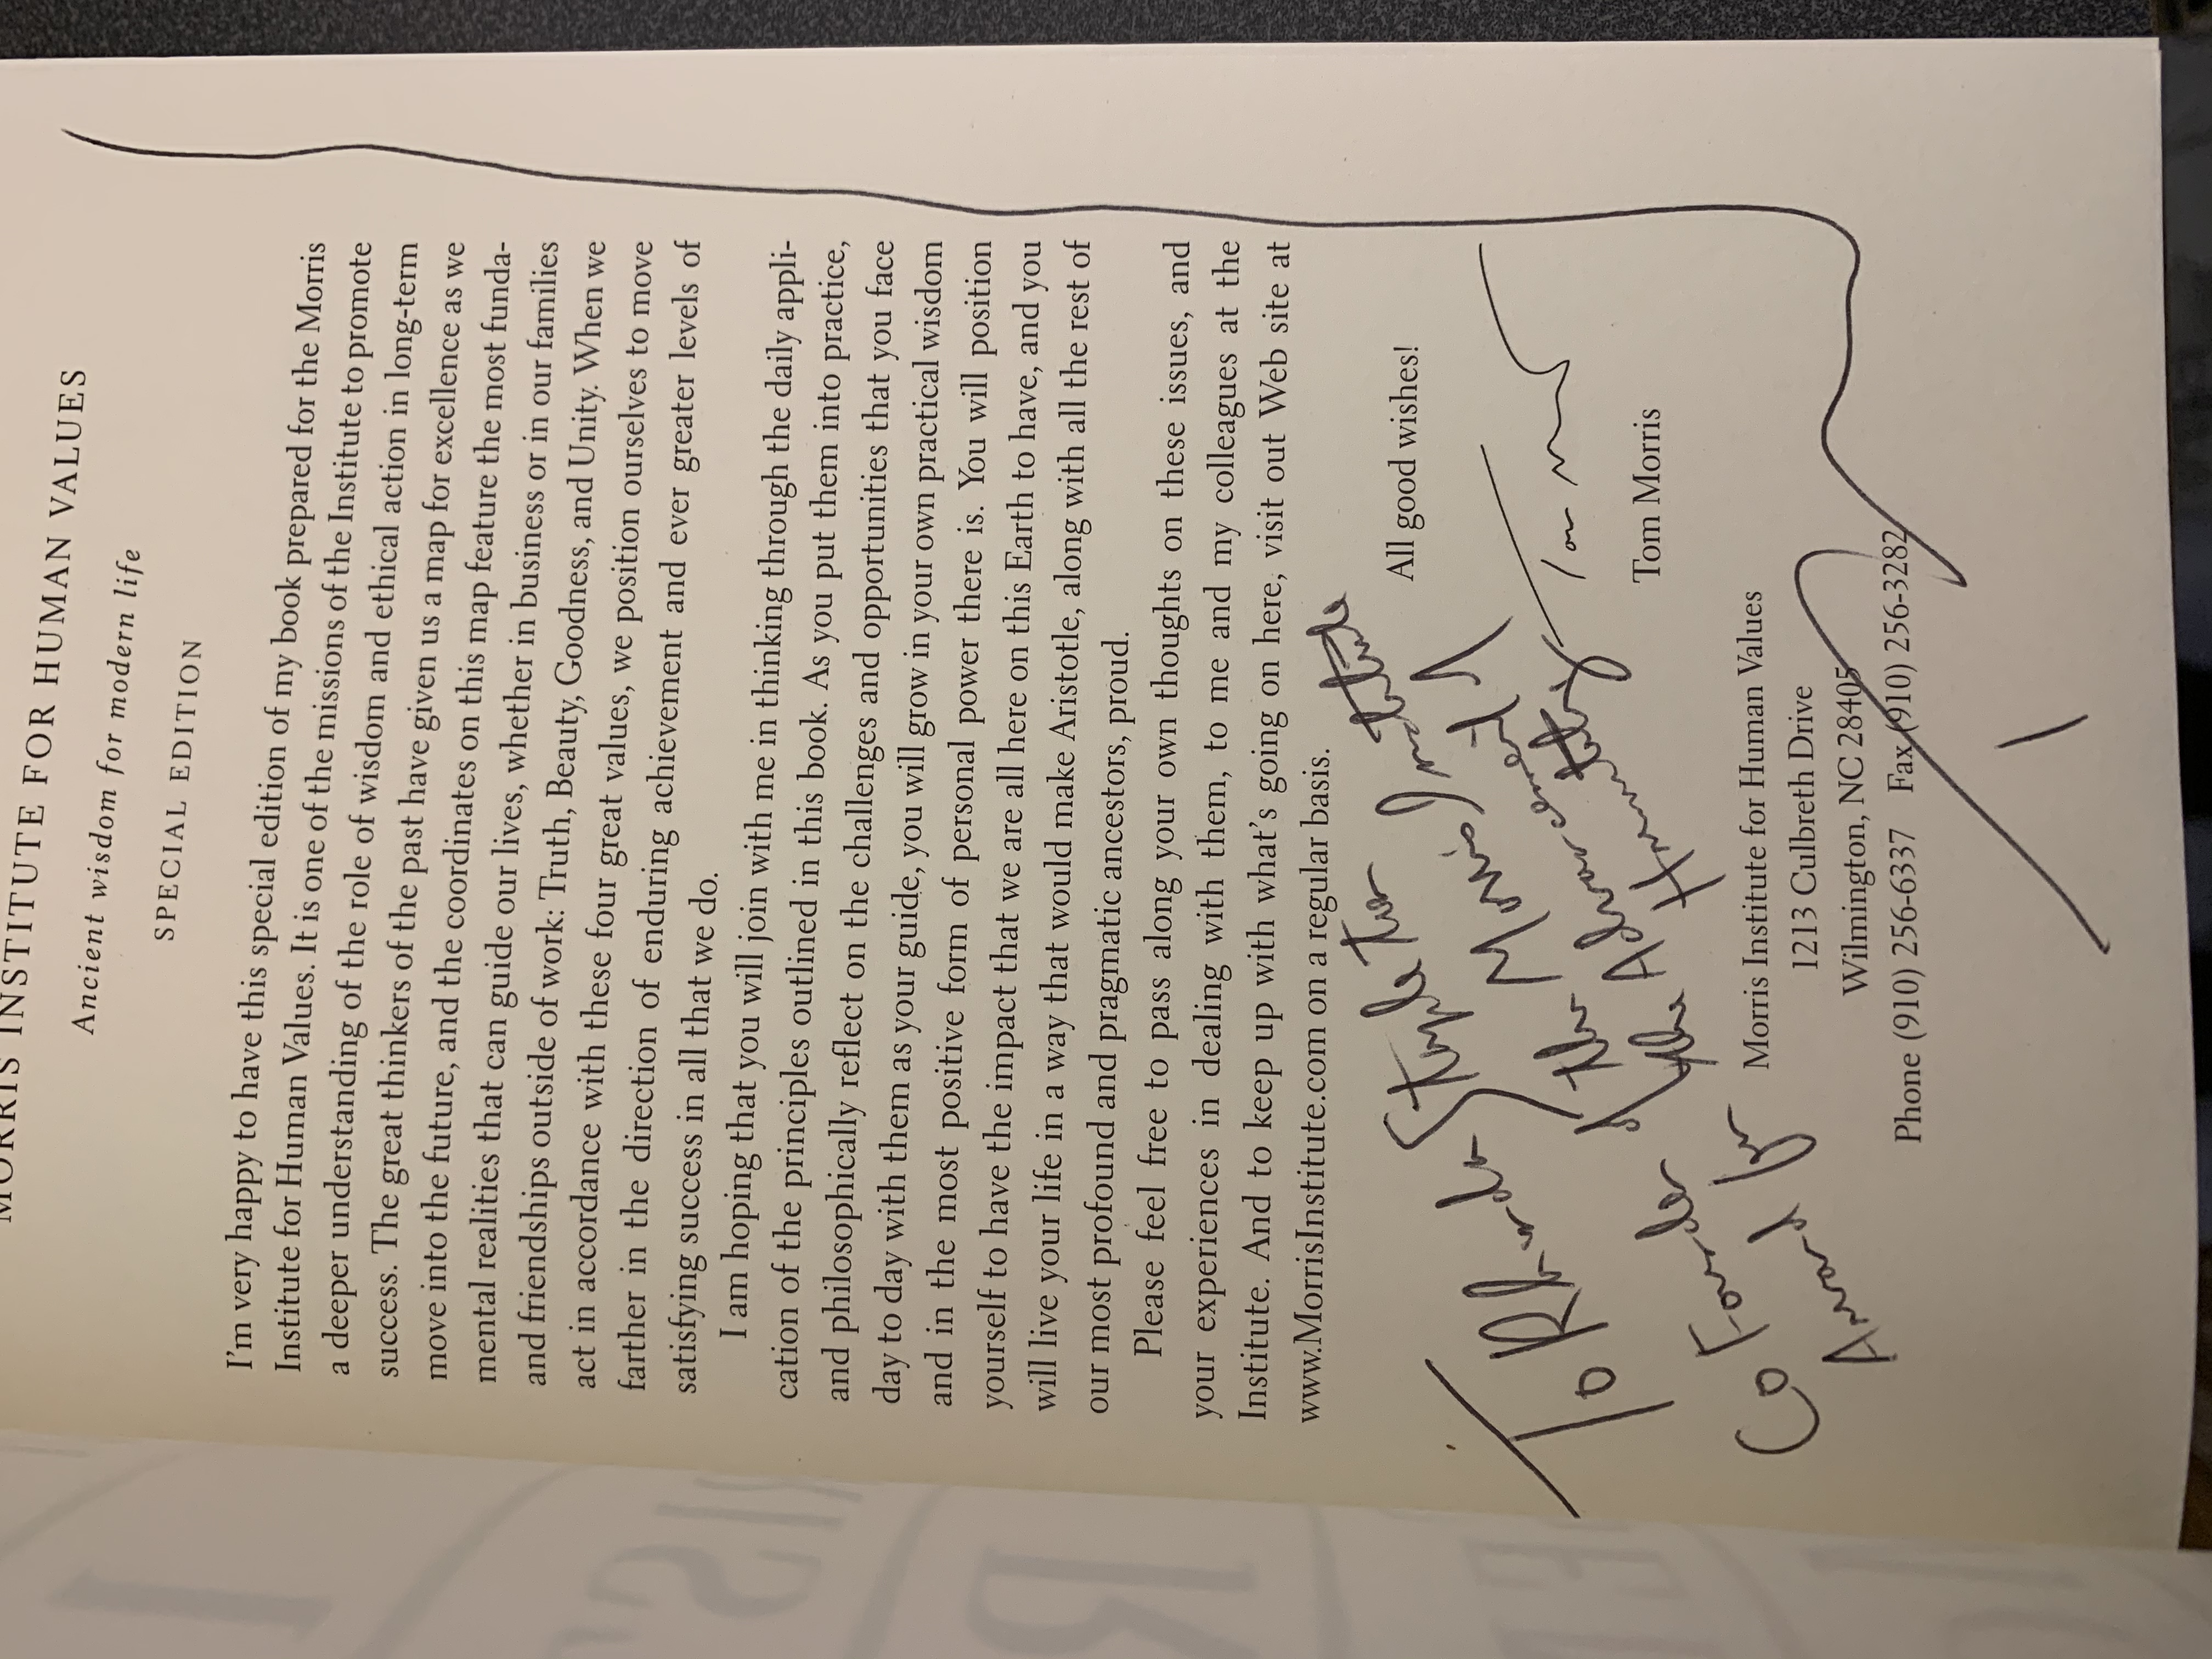 MORRIS INSTITUTE FOR HUMAN VALUES
Ancient wisdom for modern life
SPECIAL EDITION
I'm very happy to have this special edition of my book prepared for the Morris
Institute for Human Values. It is one of the missions of the Institute to promote
a deeper understanding of the role of wisdom and ethical action in long-term
success. The great thinkers of the past have given us a map for excellence as we
move into the future, and the coordinates on this map feature the most funda-
mental realities that can guide our lives, whether in business or in our families
and friendships outside of work: Truth, Beauty, Goodness, and Unity. When we
act in accordance with these four great values, we position ourselves to move
farther in the direction of enduring achievement and ever greater levels of
satisfying success in all that we do.
I am hoping that you will join with me in thinking through the daily appli-
cation of the principles outlined in this book. As you put them into practice,
and philosophically reflect on the challenges and opportunities that you face
day to day with them as your guide, you will grow in your own practical wisdom
and in the most positive form of personal power there is. You will position
yourself to have the impact that we are all here on this Earth to have, and you
will live your life in a way that would make Aristotle, along with all the rest of
our most profound and pragmatic ancestors, proud.
Please feel free to pass along your own thoughts on these issues, and
your experiences in dealing with them, to me and my colleagues at the
Institute. And to keep up with what's going on here, visit out Web site at
www.MorrisInstitute.com on a regular basis.
All good wishes!
Tom
Tom Morris
To
Co Founder
the Morris Institute
the Advancement
Award
Morris Institute for Human Values
1213 Culbreth Drive
Wilmington, NC 28405
Phone (910) 256-6337 Fax (910) 256-3282